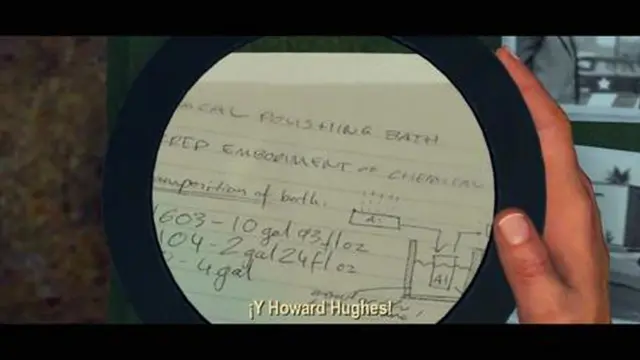 POLISHING BATH
EMBODIMENT OF CHEMICAL
composition of bath.
10 gal 93 fl oz
104 - 2 gal 24 fl oz
- 4 gal
Al
¡Y Howard Hughes!